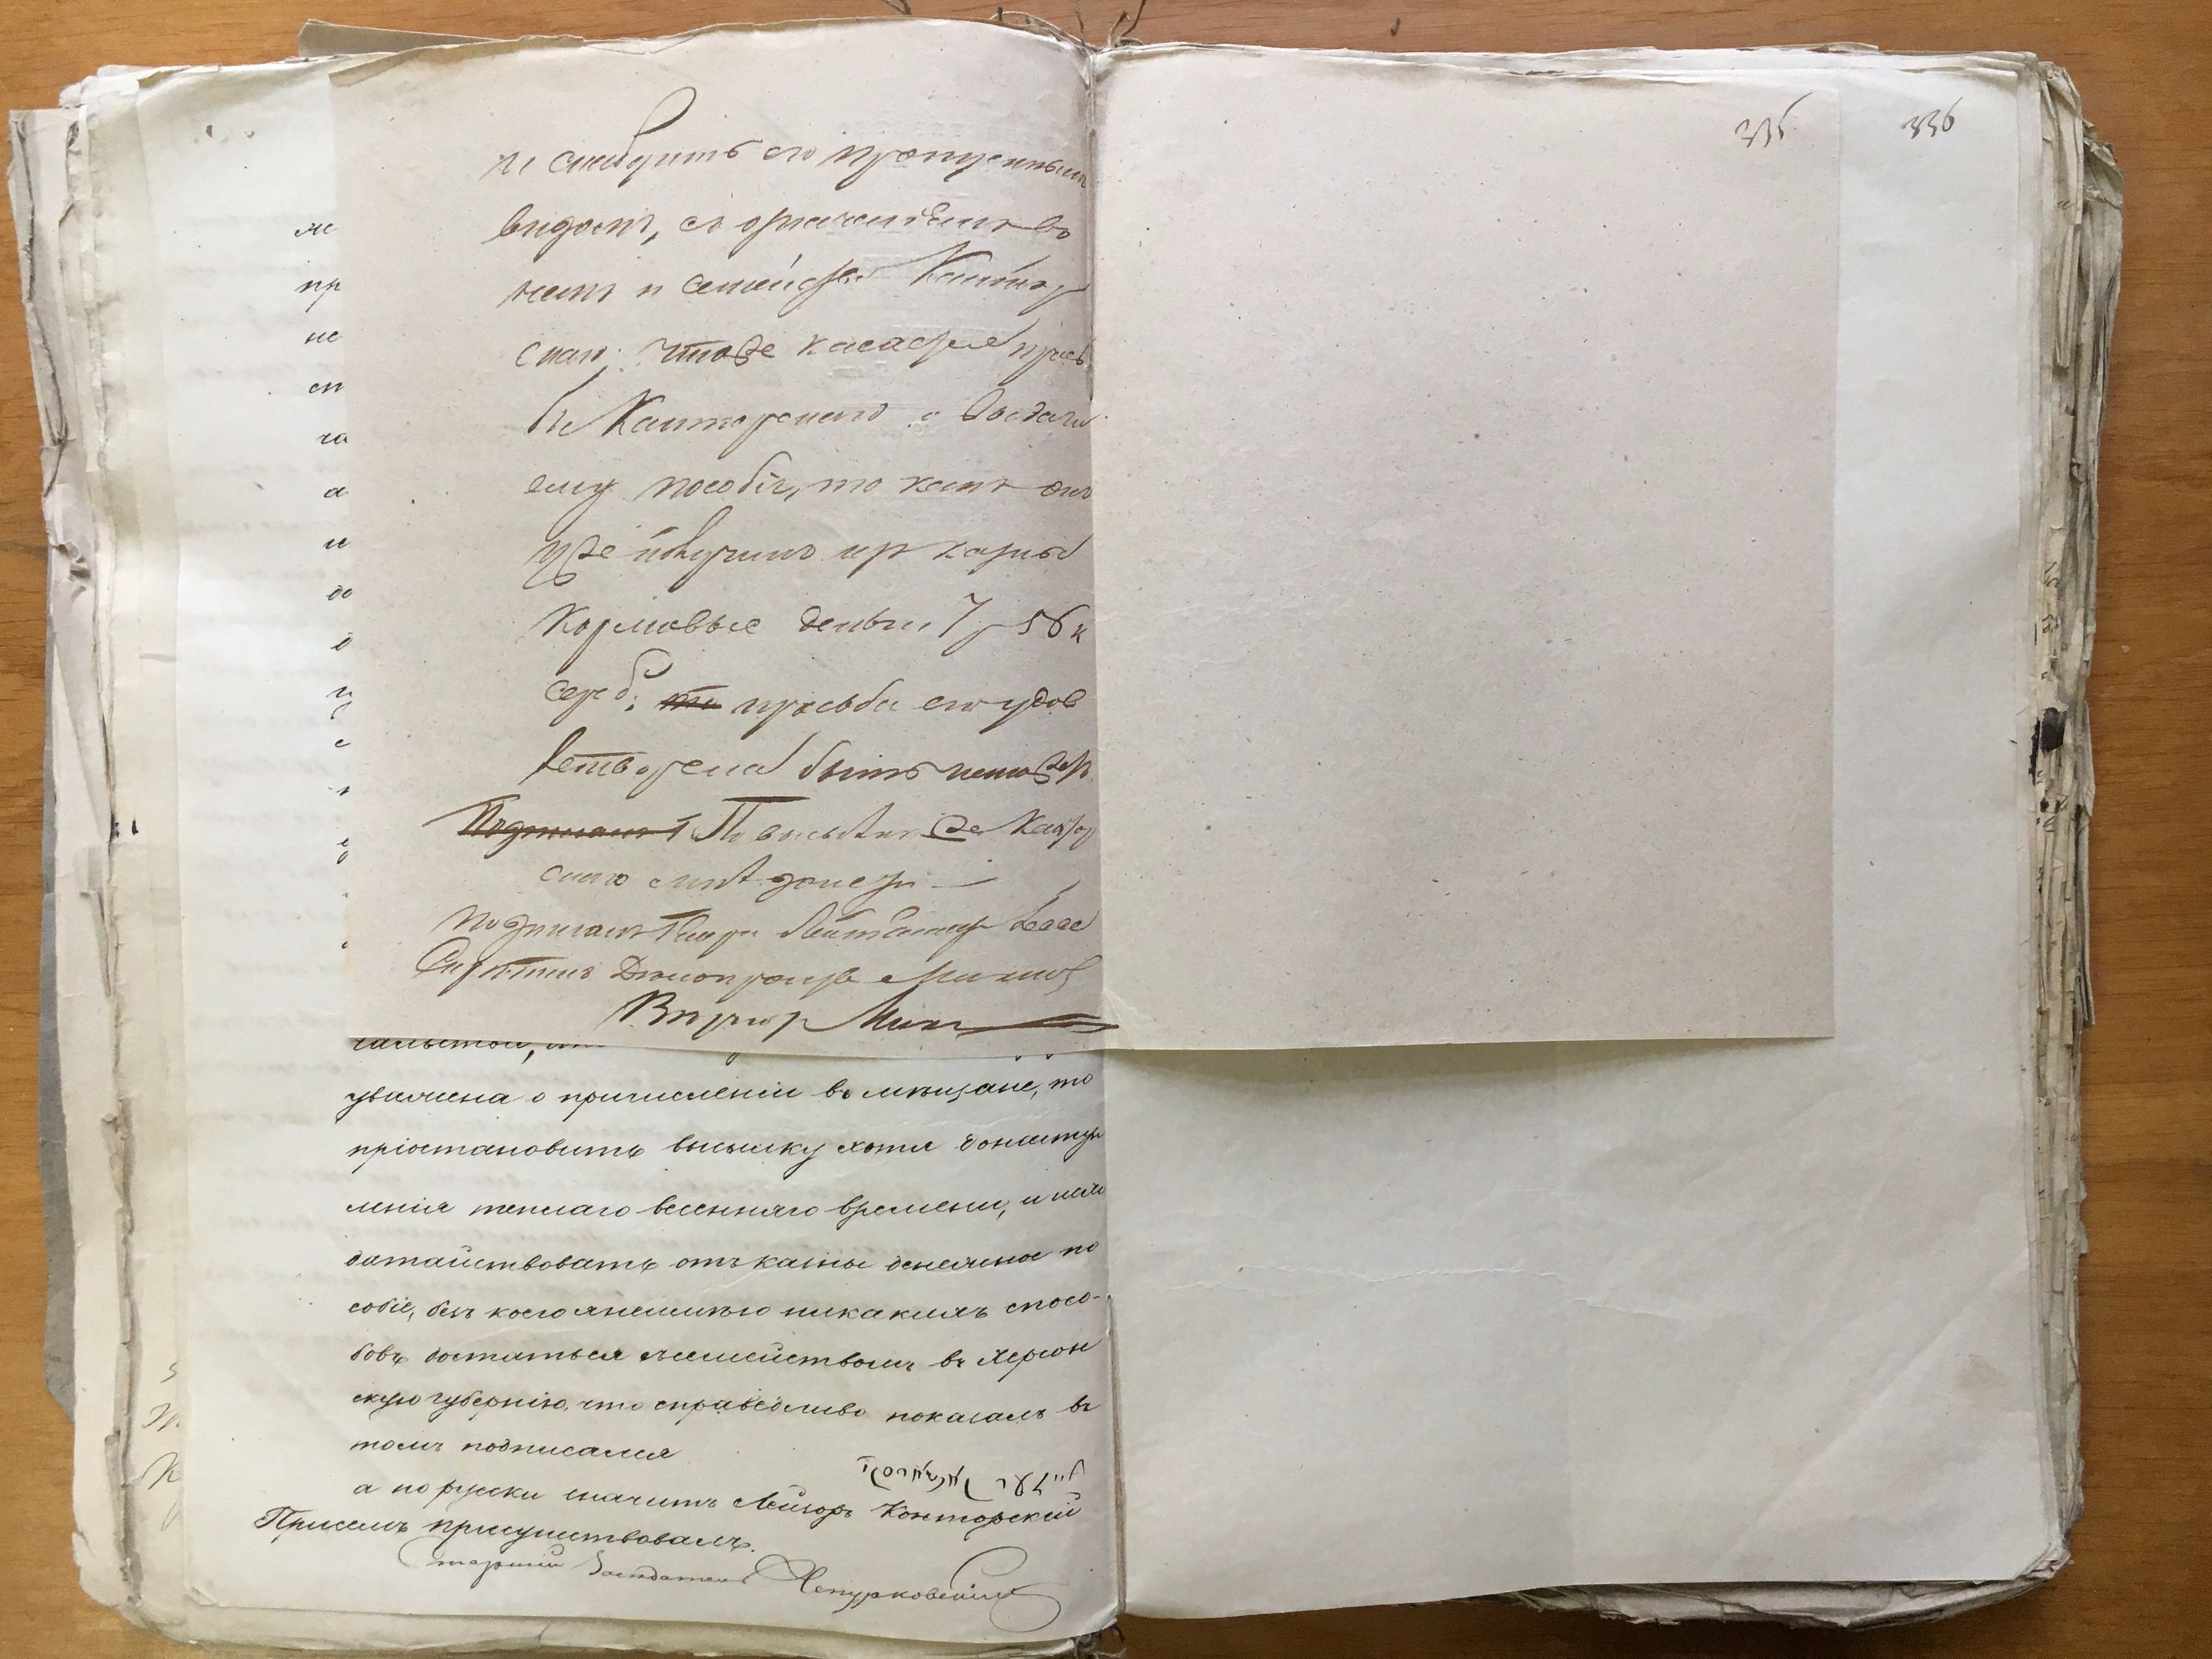 335
336
и снабдить его пропускным
видом, съ означеніемъ въ
немъ и семейства Кантор
скаго; чтоже касается прось
бы Канторскаго о выдачи
ему пособія, то какъ онъ
уже получилъ изъ казны
кормовые деньги 7 р 56 к
сереб; то просьба его удов
летворена быть неможетъ.
Подписалъ По высылкѣ же Кантор
скаго мнѣ донести
подписалъ Генер
Скрѣпилъ
же
пр
не
сп
га
а
и
до
уважена о причисленіи въ мѣщане, то
пріостановить высылку хотя до наступ
ленія теплаго весенняго времени, и исхо
датайствовать отъ казны денежное по
собіе, безъ коего я неимѣю никакихъ спосо-
бовъ достаться съ семействомъ въ Херсон
скую губернію, что справедливо показалъ въ
томъ подписался
а по руски значитъ Лейзоръ Конторскій
Присемъ присутствовалъ.
старшій Засѣдатель Чепурковскій